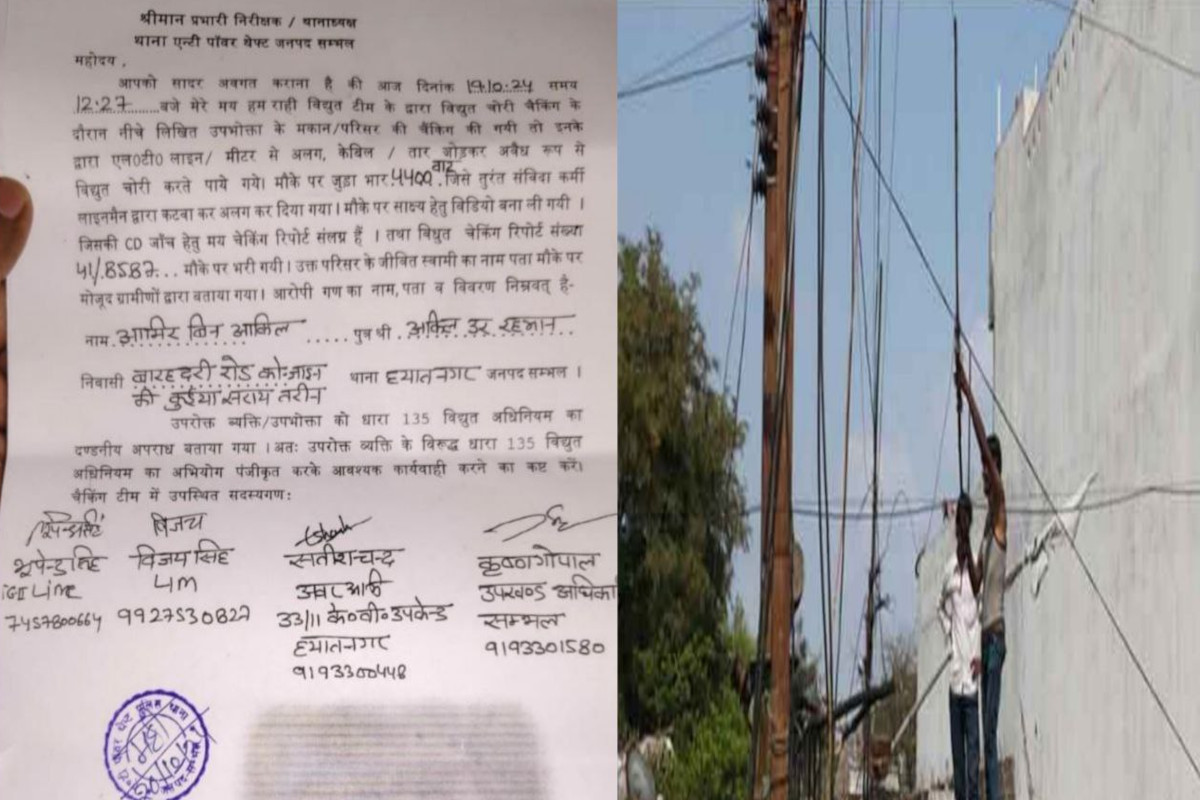 श्रीमान प्रभारी निरीक्षक / थानाध्यक्ष
थाना एन्टी पॉवर थेफ्ट जनपद सम्भल
महोदय ,
आपको सादर अवगत कराना है की आज दिनांक 19.10.24 समय
12:27 बजे मेरे मय हम राही विद्युत टीम के द्वारा विद्युत चोरी चैकिंग के
दौरान नीचे लिखित उपभोक्ता के मकान/परिसर की चैकिंग की गयी तो इनके
द्वारा एल0टी0 लाइन/ मीटर से अलग, केबिल / तार जोड़कर अवैध रूप से
विद्युत चोरी करते पाये गये। मौके पर जुडा भार 4400 वाट जिसे तुरंत संविदा कर्मी
लाइनमैन द्वारा कटवा कर अलग कर दिया गया। मौके पर साक्ष्य हेतु विडियो बना ली गयी ।
जिसकी CD जाँच हेतु मय चेकिंग रिपोर्ट संलग्न हैं । तथा विधुत चेकिंग रिपोर्ट संख्या
41/8587... मौके पर भरी गयी। उक्त परिसर के जीवित स्वामी का नाम पता मौके पर
मोजूद ग्रामीणों द्वारा बताया गया। आरोपी गण का नाम, पता व विवरण निम्नवत् है-
नाम. आमिर बिन आकिल ..... पुत्र श्री. अकिल उर रहमान..
निवासी बारहदरी रोड को.जाइन थाना हयातनगर जनपद सम्भल ।
की कुईया सराय तरीन
उपरोक्त ब्यक्ति/उपभोक्ता को धारा 135 विद्युत अधिनियम का
दण्डनीय अपराध बताया गया । अतः उपरोक्त व्यक्ति के विरूद्ध धारा 135 विद्युत
अधिनियम का अभियोग पंजीकृत करके आवश्यक कार्यवाही करने का कष्ट करें।
चैकिंग टीम में उपस्थित सदस्यगण:
विजय
भूपेन्द्र सिंह विजय सिंह सतीश चन्द्र कृष्णगोपाल
Line 4m अवर उपखण्ड अधिका
7457800664 9927530827 33/11 के०वी० उपकेन्द्र सम्भल
हयातनगर 9193301580
9193300448